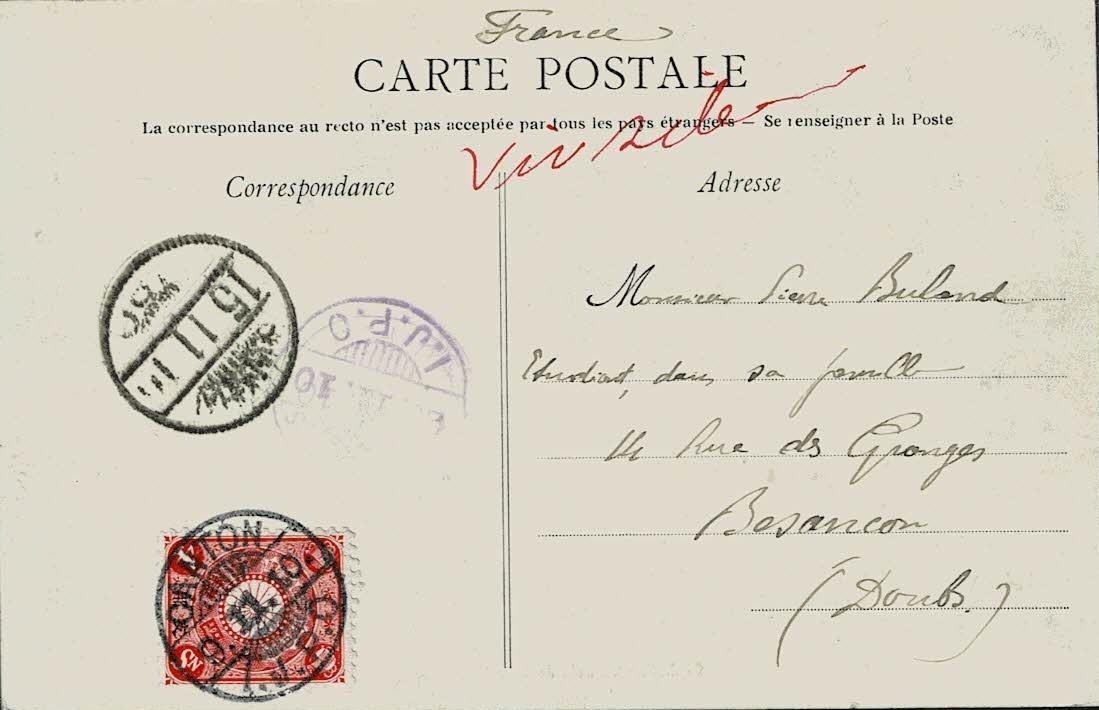 France
CARTE POSTALE
La correspondance au recto n'est pas acceptée par tous les pays étrangers — Se renseigner à la Poste
Correspondance
Adresse
Monsieur Pierre
Etudiant, dans sa famille
14 Rue des Granges
Besancon
(Doubs.)
15.11.11
I.J.P.O
CANTON
I.J.P.O